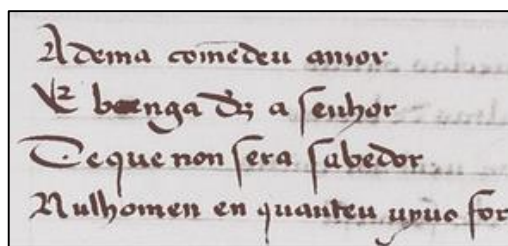 A dema comēdeu amor
benga ds a senhor
De que non sera sabedor
Nulhomen en quanteu uyuo for